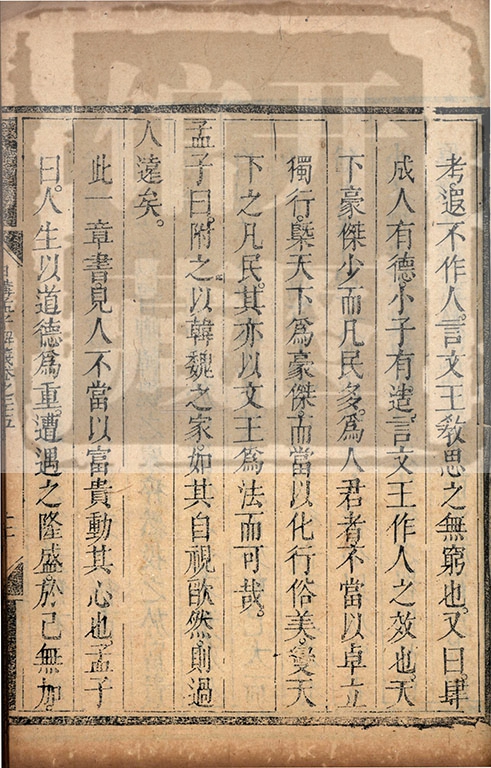 考。遐不作人。言文王教思之無窮也。又曰。肆
成人有德。小子有造。言文王作人之效也。天
下豪傑少而凡民多。為人君者。不當以卓立
獨行。槩天下為豪傑。而當以化行俗美。變天
下之凡民。其亦以文王為法而可哉。
孟子曰。附之以韓魏之家。如其自視欿然。則過
人遠矣。
此一章書。見人不當以富貴動其心也。孟子
曰。人生以道德為重。遭遇之隆盛。於己無加
日講四書解義卷之二十五